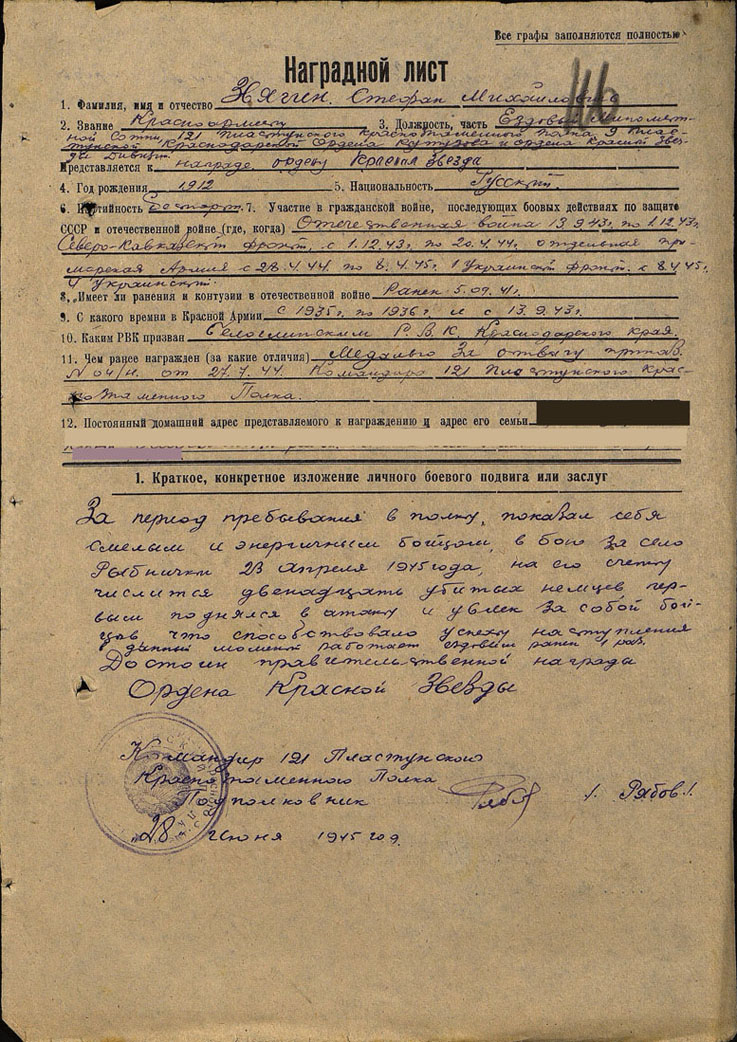 Все графы заполняются полностью
Наградной лист
1. Фамилия, имя и отчество Стефан Михайлович
2. Звание Красноармеец 3. Должность, часть Ездовый Миномет-
ной Сотни, 121 Пластунского Краснознаменного полка 9 Плас-
тунской Краснодарской Ордена Кутузова и ордена Красной Звез-
ды Дивизии
Представляется к награде ордену Красная Звезда
4. Год рождения 1912 5. Национальность Русский.
6. Партийность Беспарт. 7. Участие в гражданской войне, последующих боевых действиях по защите
СССР и отечественной войне (где, когда) Отечественная война 13.9.43г. по 1.12.43г.
Северо-Кавказский фронт, с 1.12.43г. по 20.4.44г. отдельная при-
морская Армия с 28.4.44 по 8.4.45г. 1 Украинский фронт. с 8.4.45г.
4 Украинский.
8. Имеет ли ранения и контузии в отечественной войне Ранен 5.09.41г.
9. С какого времни в Красной Армии с 1935г. по 1936г. и с 13.9.43г.
10. Каким РВК призван Белоглинским Р.В.К. Краснодарского края.
11. Чем ранее награжден (за какие отличия) Медалью За отвагу приказ.
№ 04/н. от 27.7.44 Командира 121 Пластунского Крас-
нознаменного Полка.
12. Постоянный домашний адрес представляемого к награждению и адрес его семьи
1. Краткое, конкретное изложение личного боевого подвига или заслуг
За период пребывания в полку, показал себя
смелым и энергичным бойцом, в бою за село
Рыбнички 23 апреля 1945 года, на его счету
числится двенадцать убитых немцев пер-
вым поднялся в атаку и увлек за собой бой-
цов что способствовало успеху наступления
данный момент работает ездовым ранен 1 раз.
Достоин правительственной награда
Ордена Красной Звезды
Командир 121 Пластунского
Краснознаменного Полка
Подполковник /. Рябов./.
"28" июня 1945 год.